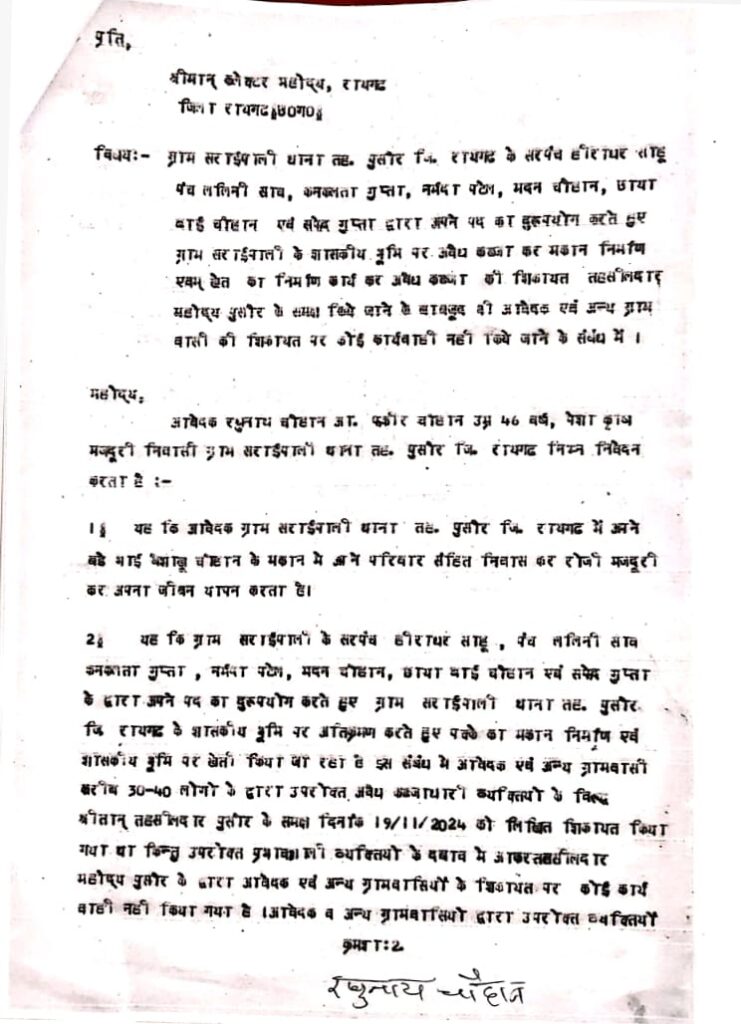 प्रति,
श्रीमान् कलेक्टर महोदय, रायगढ
जिला रायगढ§छ0ग0§
विषय:- ग्राम सराईपाली थाना तह. पुसौर जि. रायगढ के सरपंच हीराधर साहू
पंच ललिनी साव, कनकलता गुप्ता, नर्मदा पटेल, मदन चौहान, छाया
बाई चौहान एवं सफेद गुप्ता द्वारा अपने पद का दुरूपयोग करते हुए
ग्राम सराईपाली के शासकीय भूमि पर अवैध कब्जा कर मकान निर्माण
एवम् खेत का निर्माण कार्य कर अवैध कब्जा की शिकायत तहसीलदार
महोदय पुसौर के समक्ष किये जाने के बावजूद भी आवेदक एवं अन्य ग्राम
वासी की शिकायत पर कोई कार्यवाही नहीं किये जाने के संबंध में ।
महोदय,
आवेदक रघुनाथ चौहान आ. फकीर चौहान उम्र 46 वर्ष, पेशा कृषि
मजदूरी निवासी ग्राम सराईपाली थाना तह. पुसौर जि. रायगढ निम्न निवेदन
करता है :-
1§ यह कि आवेदक ग्राम सराईपाली थाना तह. पुसौर जि. रायगढ में अपने
बडे भाई चौहान के मकान मे अपने परिवार सहित निवास कर रोजी मजदूरी
कर अपना जीवन यापन करता है।
2§ यह कि ग्राम सराईपाली के सरपंच हीराधर साहू , पंच ललिनी साव
कनकलता गुप्ता , नर्मदा पटेल, मदन चौहान, छाया बाई चौहान एवं सफेद गुप्ता
के द्वारा अपने पद का दुरूपयोग करते हुए ग्राम सराईपाली थाना तह. पुसौर
जि रायगढ के शासकीय भूमि पर अतिक्रमण करते हुए पक्के का मकान निर्माण एवं
शासकीय भूमि पर खेती किया जा रहा है इस संबंध मे आवेदक एवं अन्य ग्रामवासी
करीब 30-40 लोगों के द्वारा उपरोक्त अवैध कब्जाधारी व्यक्तियों के विरूद्ध
श्रीमान् तहसीलदार पुसौर के समक्ष दिनांक 19/11/2024 को लिखित शिकायत किया
गया था किन्तु उपरोक्त प्रभावशाली व्यक्तियों के दबाव मे आकर तहसीलदार
महोदय पुसौर के द्वारा आवेदक एवं अन्य ग्रामवासियों के शिकायत पर कोई कार्य
वाही नहीं किया गया है ।आवेदक व अन्य ग्रामवासियो द्वारा उपरोक्त व्यक्तियों
क्रमश:2
रघुनाथ चौहान